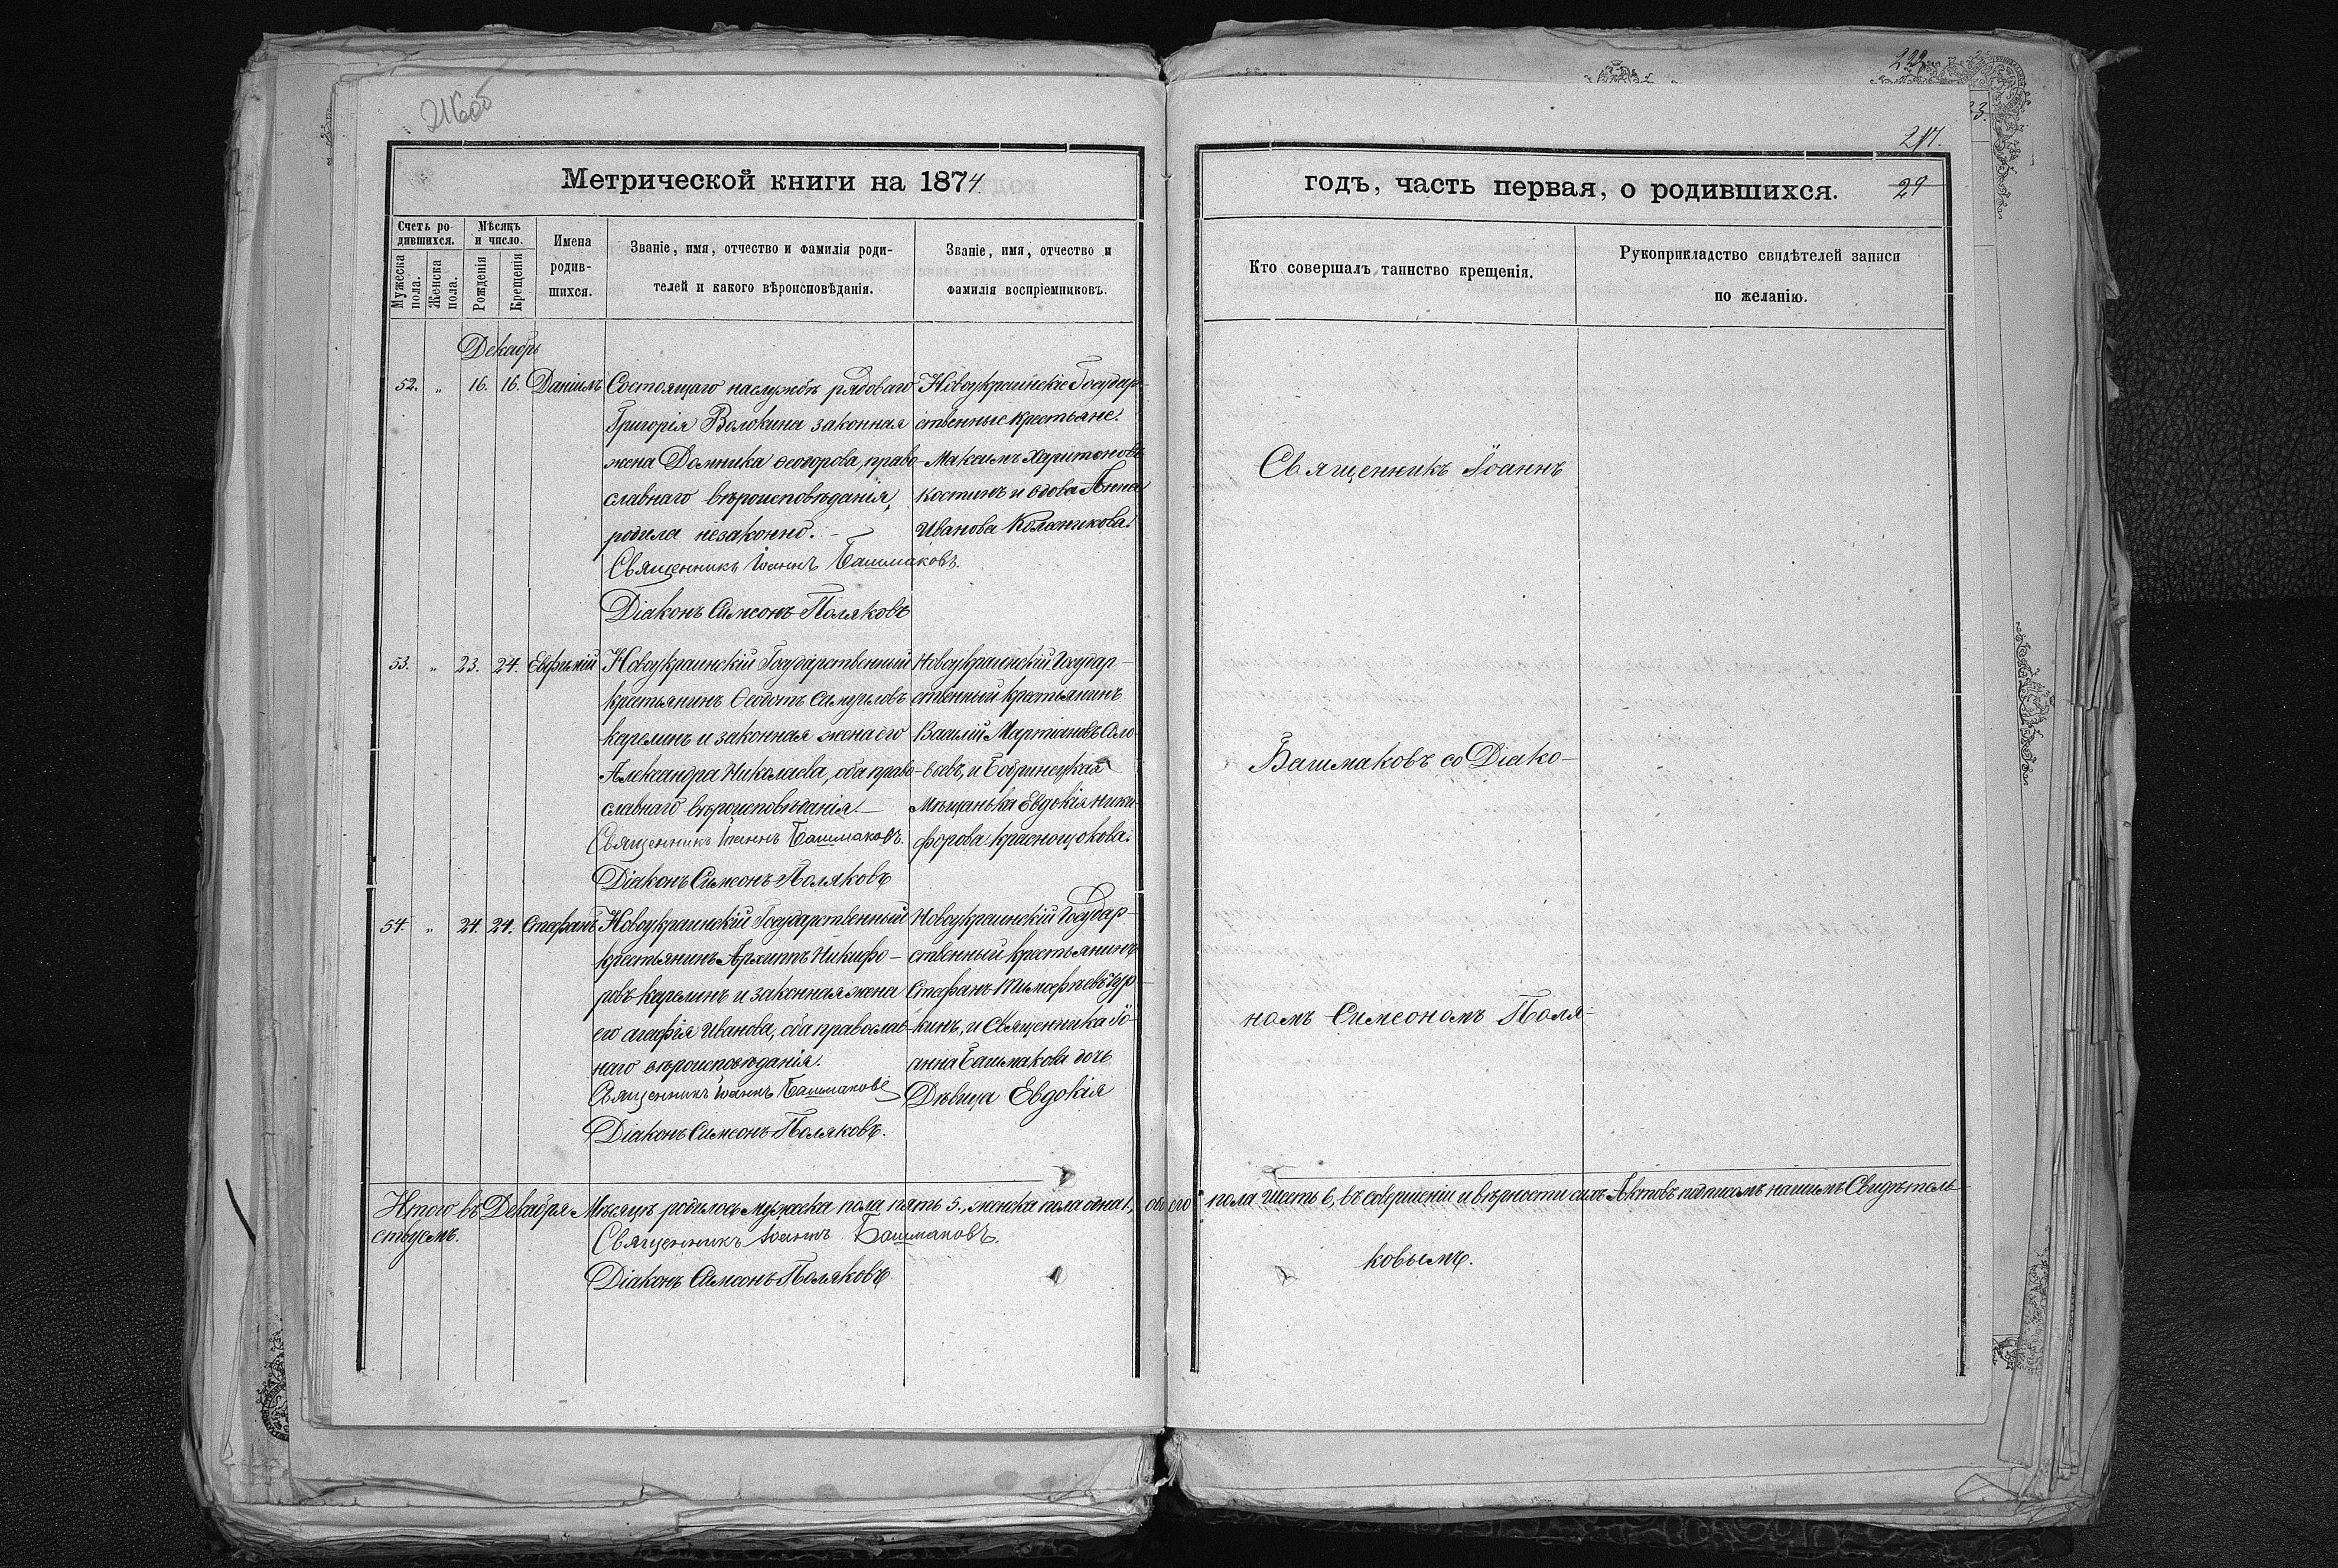 216об
217.
Метрической книги на 1874
годъ, часть первая, о родившихся.
29
Счетъ ро-
дившихся.
Мѣсяцъ
и число.
Мужеска
пола.
Женска
пола.
Рожденія
Крещенія
Имена
родив-
шихся.
Званіе, имя, отчество и фамилія роди-
телей и какого вѣроисповѣданія.
Званіе, имя, отчество и
фамилія воспріемниковъ.
Кто совершалъ таинство крещенія.
Рукоприкладство свидѣтелей записи
по желанію.
Декабрь
52. „ 16. 16. Даніилъ
Состоящаго наслужбѣ рядоваго
Григорія Волокина законная
жена Домника Ѳеодорова, право-
славнаго вѣроисповѣданія,
родила незаконно.
Священникъ Іоаннъ Башмаковъ.
Діаконъ Симеонъ Поляковъ
Новоукраинскіе Государ-
ственные крестьяне.
Максимъ Харитоновъ
Костинъ и вдова Анна
Иванова Колесникова.
53. „ 23. 24. Евфимій
Новоукраинскій Государственный
крестьянинъ Ѳеодотъ Самуиловъ
Карелинъ и законная жена его
Александра Николаева, оба право-
славнаго вѣроисповѣданія.
Священникъ Іоаннъ Башмаковъ.
Діаконъ Симеонъ Поляковъ
Новоукраинскій Государ-
ственный крестьянинъ
Василій Мартиновъ Соло-
вьевъ, и Бобринецкая
Мѣщанька Евдокія Ники-
форова Краснощокова.
54. „ 24. 24. Стефанъ
Новоукраинскій Государственный
крестьянинъ Архиппъ Никифо-
ровъ Карелинъ и законная жена
его Агафія Иванова, оба православ-
наго вѣроисповѣданія.
Священникъ Іоаннъ Башмаковъ
Діаконъ Симеонъ Поляковъ.
Новоукраинскій Государ-
ственный крестьянинъ
Стефанъ Тимофѣевъ
кинъ, и Священника Іо-
анна Башмакова дочь
Дѣвица Евдокія
Священникъ Іоаннъ
Башмаковъ со Діако-
номъ Симеономъ Поля-
ковымъ.
Итого въ Декабря Мѣсяцѣ родилось мужеска пола пять 5., женска пола одна 1, обоего пола шесть 6, въ совершеніи и вѣрности сихъ Актовъ подписомъ нашимъ Свидѣтель-
ствуемъ.
Священникъ Іоаннъ Башмаковъ.
Діаконъ Симеонъ Поляковъ